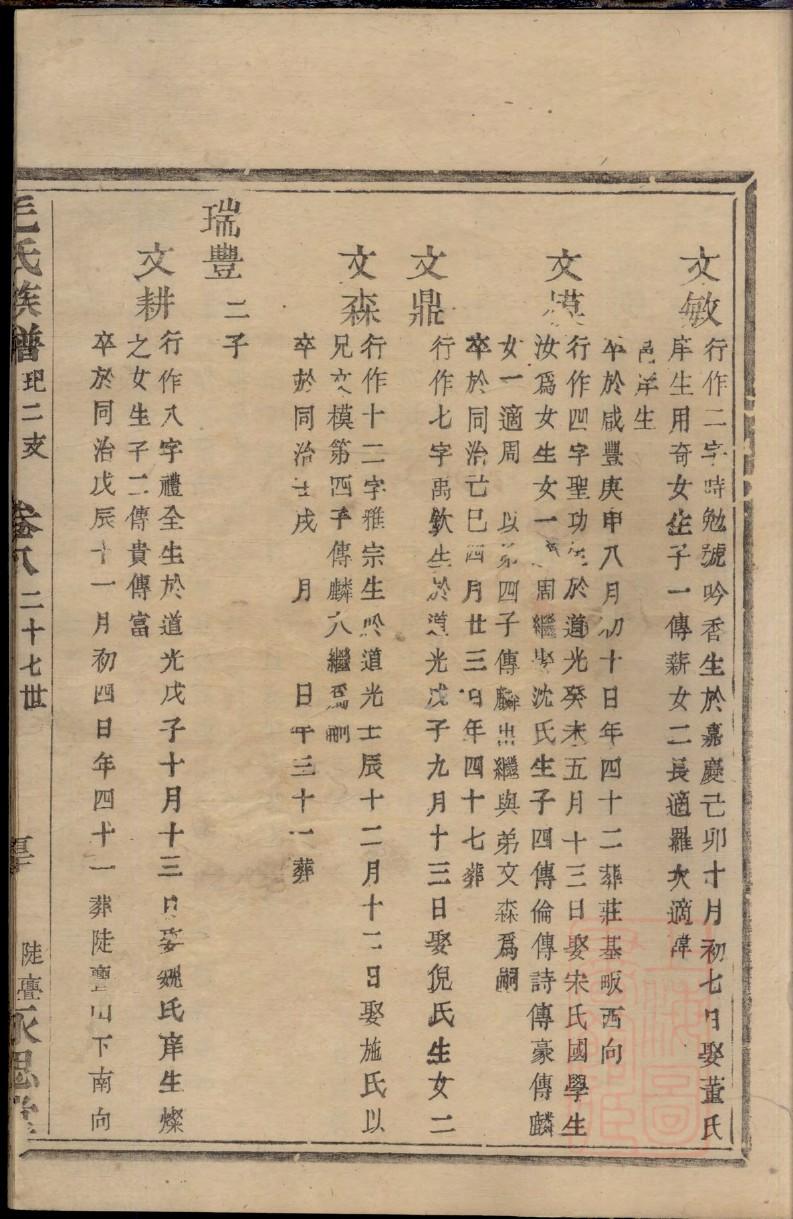 文敏
行作二字時勉號吟香生於嘉慶己卯十月初七日娶董氏
庠生用奇女生子一傳薪女二長適羅次適
邑洋生
卒於咸豐庚申八月初十日年四十二葬莊基畈西向
文模
行作四字聖功生於道光癸未五月十三日娶宋氏國學生
汝爲女生女一適周繼娶沈氏生子四傳倫傳詩傳豪傳麟
女一適周 以第四子傳麟出繼與弟文森爲嗣
卒於同治己巳四月廿三日年四十七葬
文鼎
行作七字禹欽生於道光戊子九月十三日娶倪氏生女二
文森
行作十二字雅宗生於道光壬辰十二月十二日娶施氏以
兄文模第四子傳麟入繼爲嗣
卒於同治壬戌 月 日年三十一葬
瑞豐 二子
文耕
行作入字禮全生於道光戊子十月十三日娶姚氏庠生燦
之女生子二傳貴傳富
卒於同治戊辰十一月初四日年四十一葬陡亹山下南向
毛氏族譜 玘二支 卷八 二十七世 陡亹永思堂